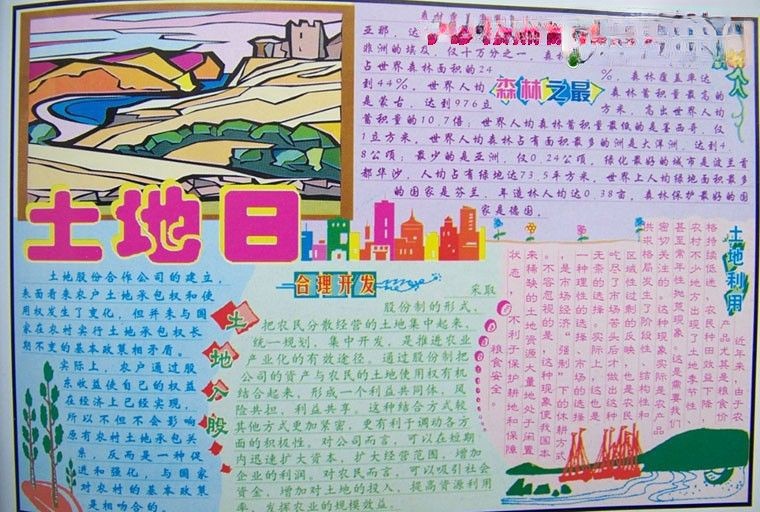 亚那，达
非洲的埃及，仅十万分之一，森林
占世界森林面积的24.
%，森林覆盖率达
到44%，世界人均
森林之最
森林蓄积量最高的
是蒙古，达到976立
方米，高出世界人均
蓄积量的10.7倍；世界人均森林蓄积量最低的是墨西哥，仅
1立方米，世界人均森林占有面积最多的洲是大洋洲，达到4.
8公顷；最少的是亚洲，仅0.24公顷，绿化最好的城市是波兰首
都华沙，人均占有绿地达73.5平方米，世界上人均绿地面积最多
的国家是芬兰，年造林人均达0.38亩，森林保护最好的国
家是德国。
土地日
土地股份合作公司的建立，
表面看来农户土地承包权和使
用权发生了变化，但并未与国
家在农村实行土地承包权长
期不变的基本政策相矛盾。
实际上，农户通过股
东收益使自己的权益
在经济上已经实现，
所以不但不会影响
原有农村土地承包关
系，反而是一种促
进和强化，与国家
对农村的基本政策
是相吻合的。
土地入股
合理开发
采取
股份制的形式，
把农民分散经营的土地集中起来，
统一规划，集中开发，是推进农业
产业化的有效途径。通过股份制把
公司的资产与农民的土地使用权有机
结合起来，形成一个利益共同体，风
险共担，利益共享。这种结合方式较
其他方式更加紧密，更有利于调动各方
面的积极性。对公司而言，可以在短期
内迅速扩大资本，扩大经营范围，增加
企业的利润，对农民而言，可以吸引社会
资金，增加对土地的投入，提高资源利用
率，发挥农业的规模效益。
土地利用
近年来，由于农
产品尤其是粮食价
格持续低迷，农民种田效益下降，
农村不少地方出现了土地季节性、
甚至常年性抛荒现象。这是需要我们
密切关注的。这种现象实际是农产品
供求格局发生了阶段性、结构性和
区域性过剩的反映，也是农民
吃尽了市场苦头后才做出这种
无奈的选择。实际上，这也是
一种理性的选择，市场的选择，
是市场经济“强制”下的休耕方式。
不容忽视的是，这种现象使我国本
来稀缺的土地资源大量地处于闲置
状态，不利于保护耕地和保障
粮食安全。